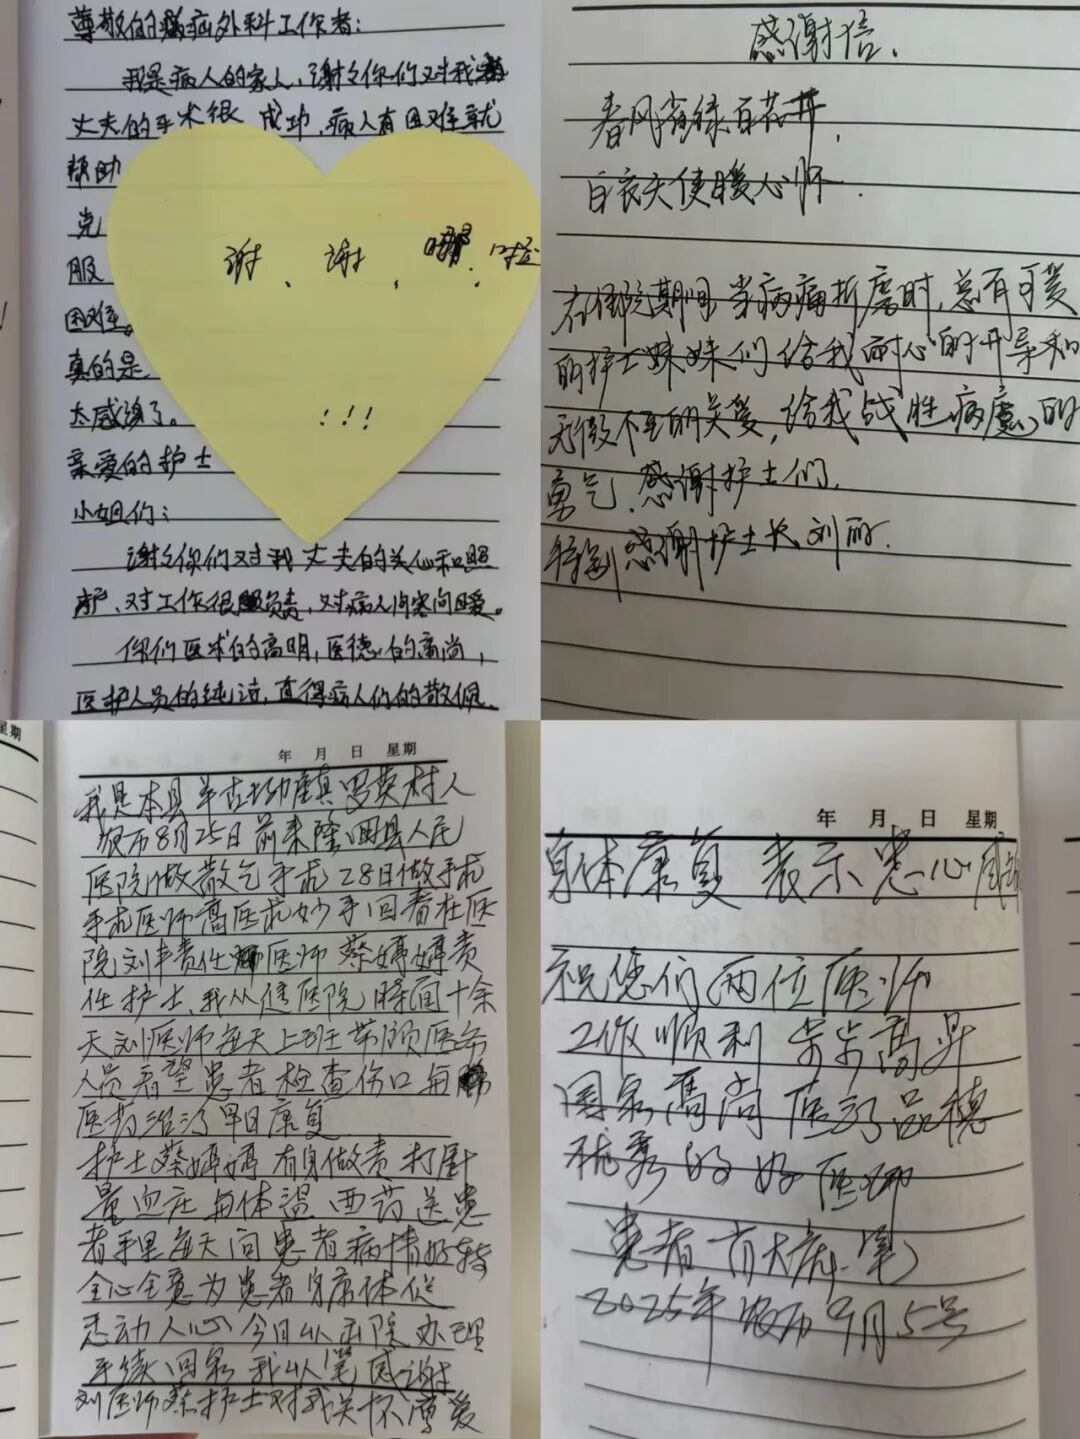 尊敬的 外科工作者：
我是病人的家人，谢谢你们对我
丈夫的手术很 成功，病人有困难就
帮助
克
服
困难。
真的是
太感谢了。
亲爱的护士
小姐们：
谢谢你们对我丈夫的关心和照
护、对工作很 负责，对病人问寒问暖。
你们医术的高明，医德 的高尚，
医护人员的纯洁，值得病人们的敬佩。
谢、谢，
！！！
感谢信.
春风 绿百花开,
白衣天使暖心怀.
在住院期间当病痛折磨时,总有可爱
的护士妹妹们给我耐心的开导和
无微不至的关爱,给我战胜病魔的
勇气.感谢护士们,
特别感谢护士长刘丽.
年 月 日 星期
我是本县 镇 村人
8月25日前来隆回县人民
医院做散气手术28日做手术
手术医师高医术妙手回春在医
院刘 责任 医师 蔡婷婷责
任护士,我从 医院 瞬间十余
天刘医师每天上班带领医务
人员看望患者检查伤口每
医药 早日康复
护士蔡婷婷 有 做责 打针
量血压 体温 西药送患
者手里每天问患者病情好转
全心全意为患者
动人心 今日从 院办理
手续回家 我 笔感谢
刘医师蔡护士对我关怀 爱
年 月 日 星期
身体康复 表示 心感
祝您们两位医师
工作顺利 步步高升
国家高尚医 品德
优秀的好医师
患者 大 笔
2025年农历9月5号